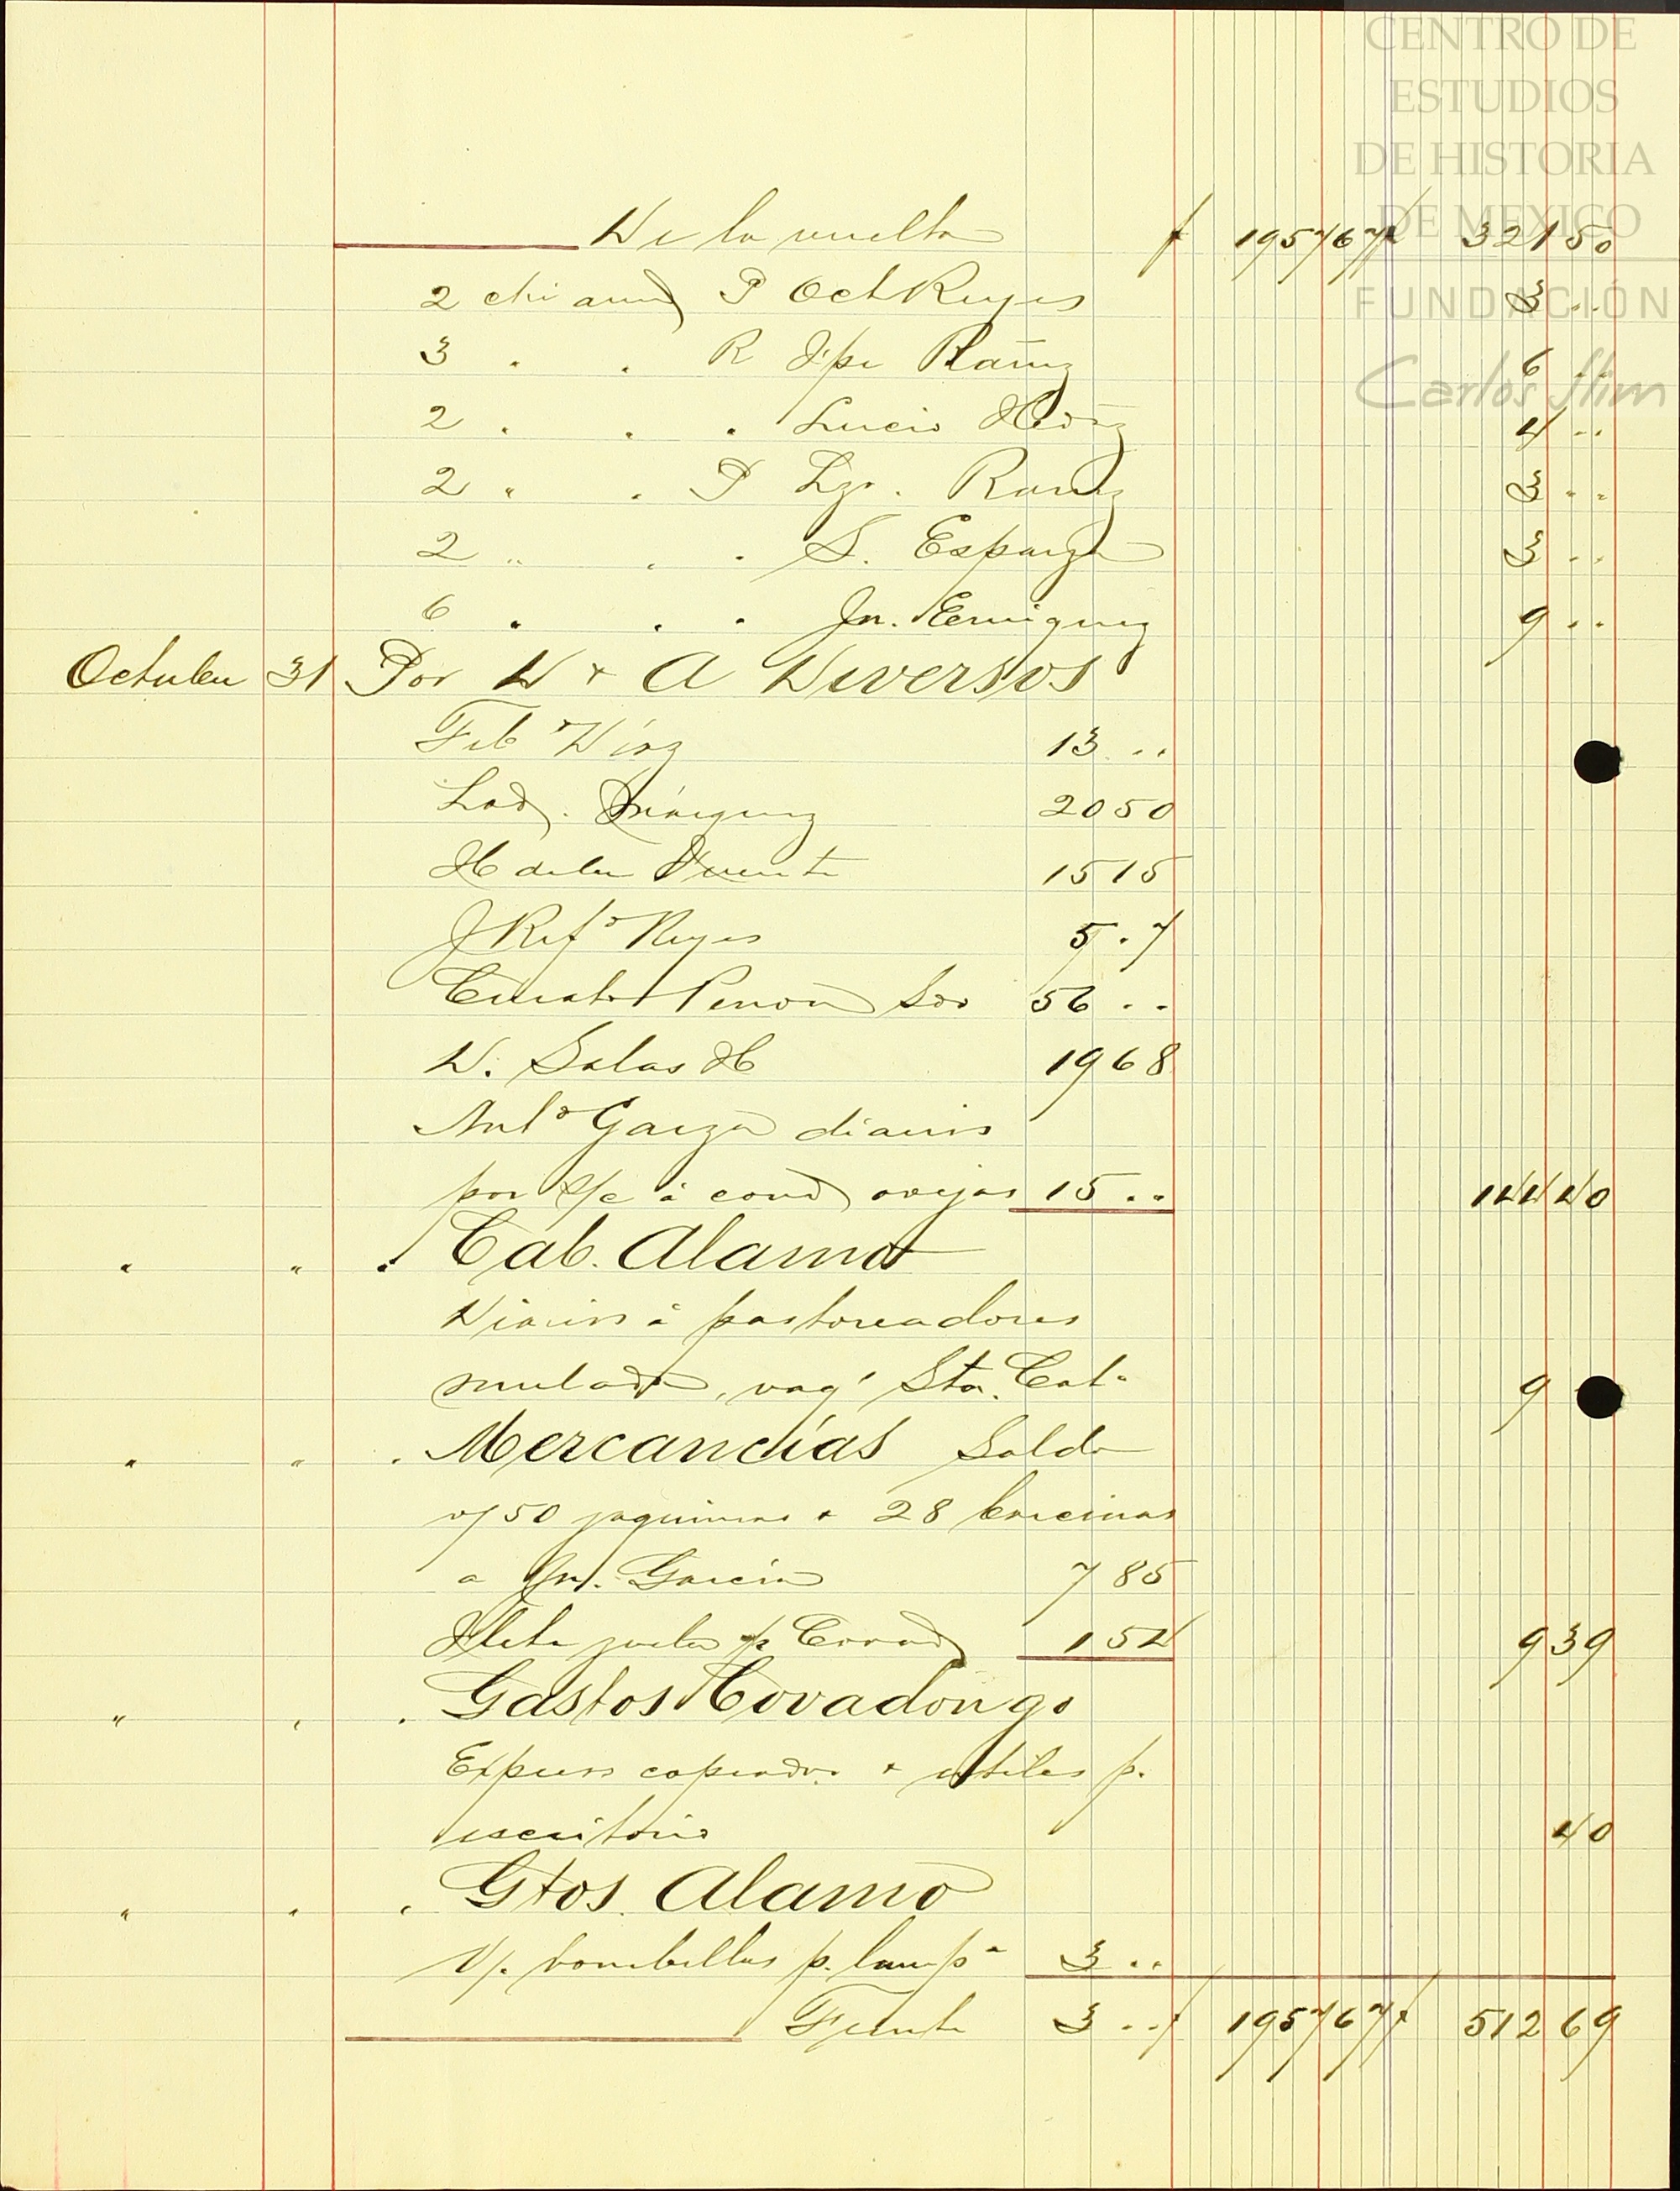 CENTRO DE
ESTUDIOS
DE HISTORIA
DE MEXICO
FUNDACIÓN
Carlos Slim
De la vuelta $ 19576 7 $ 321 50
2 P Oct Reyes 3 ..
3 . . R Jpe Ramz 6 ..
2 . . . Lucio 4 ..
2 " . P Lzo. Ramz 3 ..
2 " . . S. Esparza 3 ..
6 . . . Jn. 9 ..
Octubre 31 Por D & A Diversos
Feb 13 ..
Lad. 20 50
H de la Fuente 15 15
J Refo Reyes 5 . 7
Perron 56 ..
D. Salas H 19 68
Anto Garza diarios
por s/c á cond ovejas 15 .. 144 40
" " . Cab. Alamo
Diarios á pastoreadores
mulada, vaqa Sta. Cat. 9
" " . Mercancías Saldo
v/ 50 jaquimas & 28
a Jn. Garcia 7 85
Flete p. 1 54 9 39
" " . Gastos Covadonga
Express copiador & utiles p.
escritorio 40
" " . Gtos. Alamo
V/. bombillas p. lampa 3 ..
Frente 3 .. $ 19576 7 $ 512 69